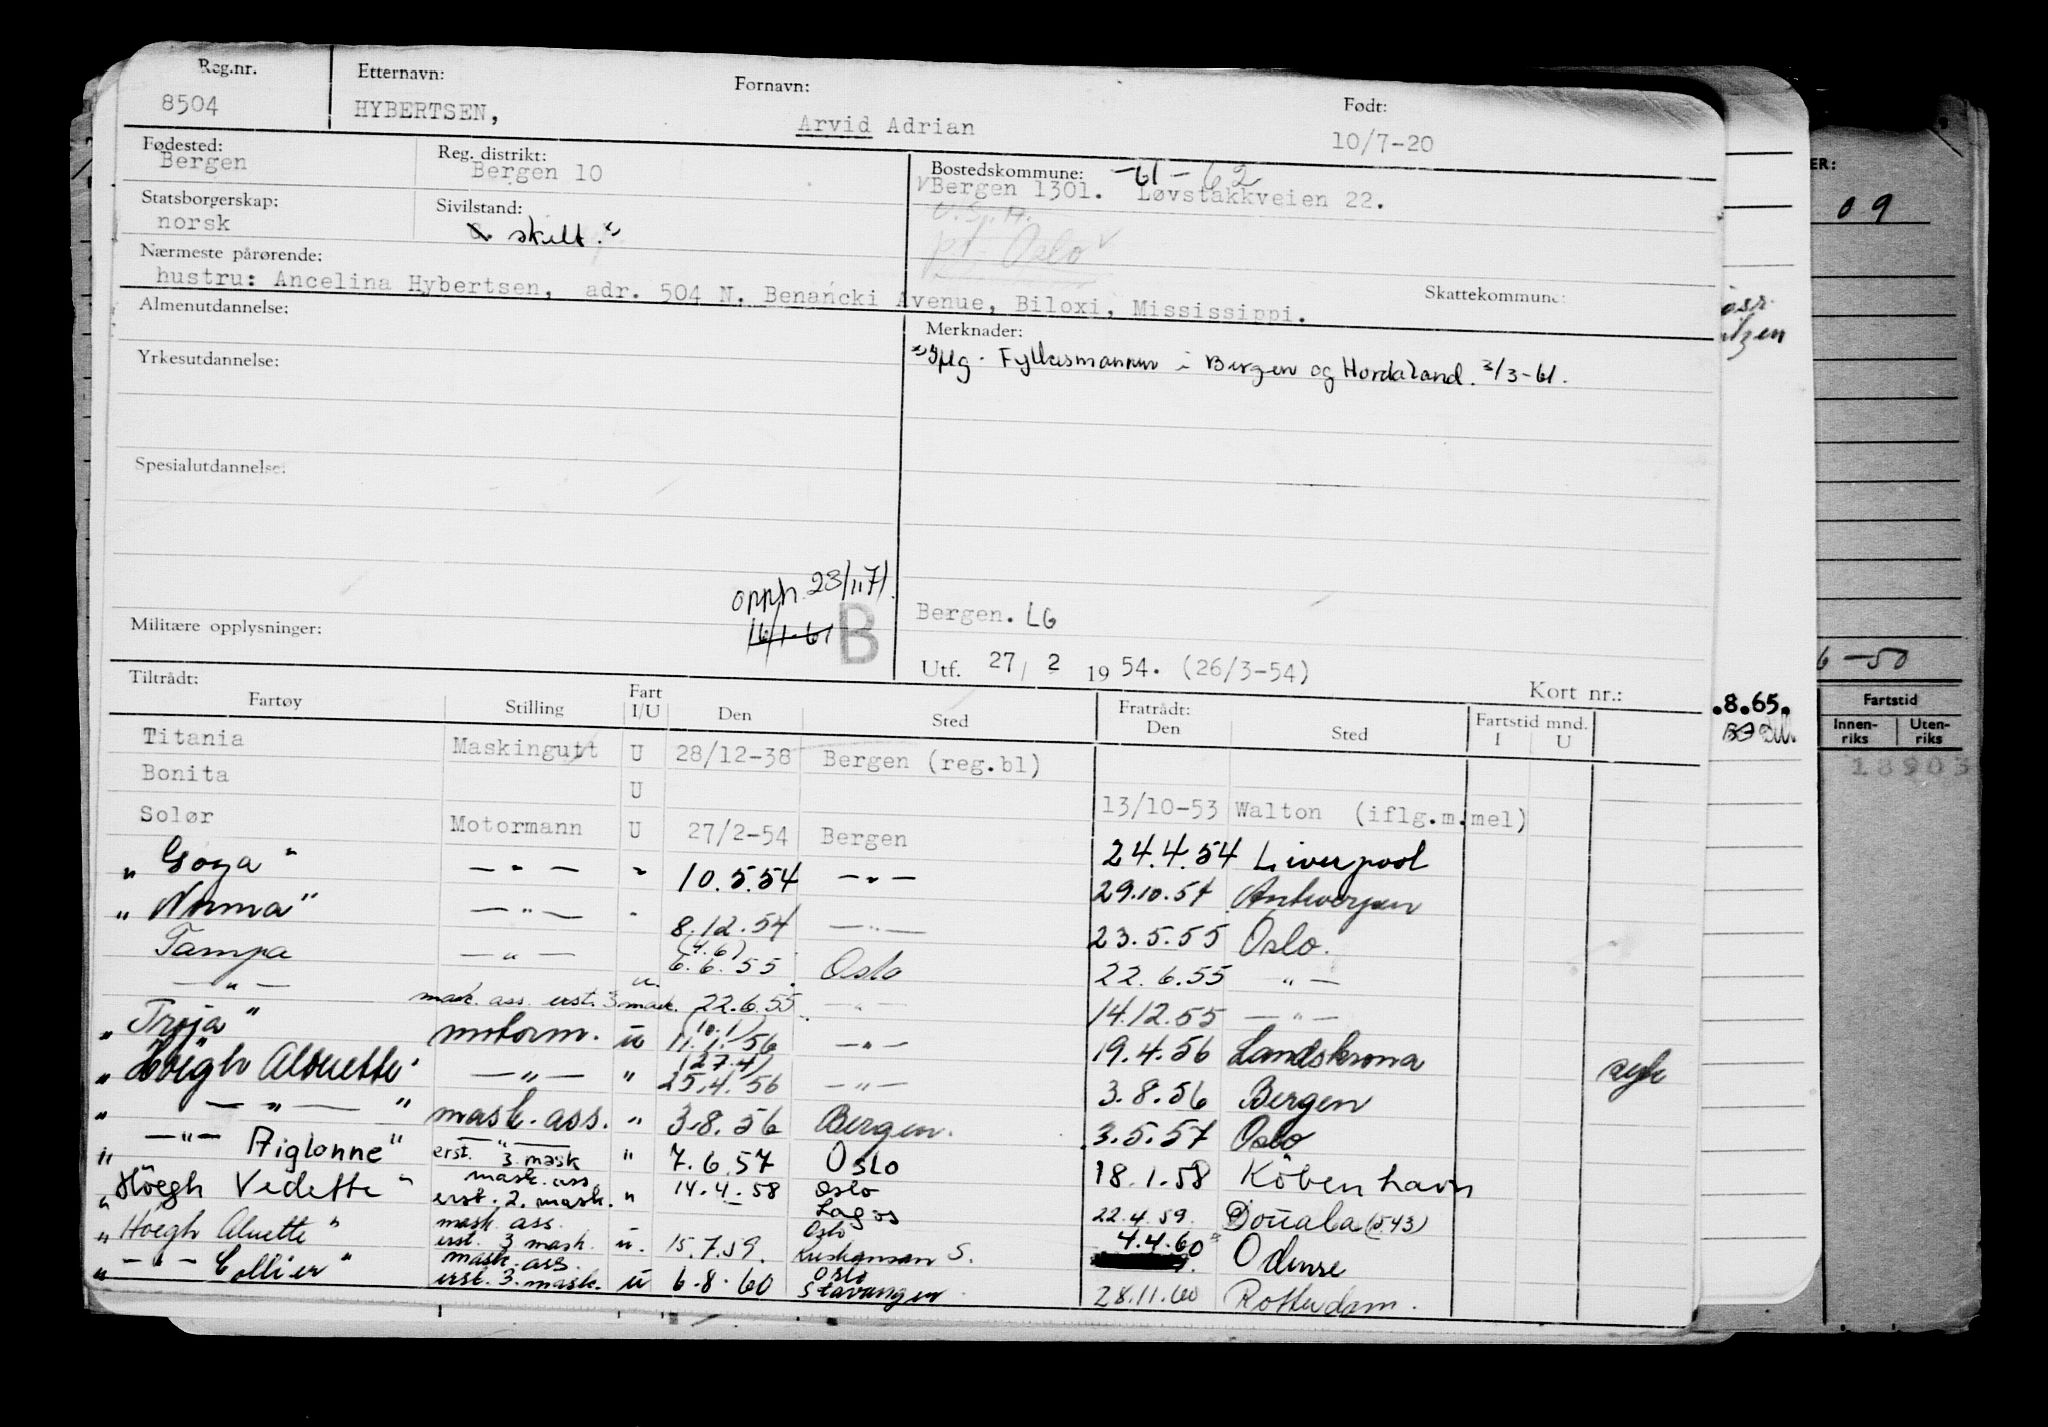 Reg.nr. Etternavn: Fornavn: Født:
8504 HYBERTSEN, Arvid Adrian 10/7-20
Fødested: Reg. distrikt: Bostedskommune: -61-62
Bergen Bergen 10 Bergen 1301. Løvstakkveien 22.
Statsborgerskap: Sivilstand:
norsk skilt. x)
pt. Oslo
Nærmeste pårørende:
hustru: Ancelina Hybertsen, adr. 504 N. Benancki Avenue, Biloxi, Mississippi.
Skattekommune:
Almenutdannelse: Merknader:
Yrkesutdannelse: Fylkesmannen i Bergen og Hordaland. 2/3-61.
Spesialutdannelse:
opph. 23/11.71.
16/1-61 B
Militære opplysninger: Bergen. LG
Utf. 27/ 2 19 54. (26/3-54)
Kort nr.:
Tiltrådt: Fratrådt:
Fartøy Stilling Fart I/U Den Sted Den Sted Fartstid mnd. I U
Titania Maskingutt U 28/12-38 Bergen (reg.bl)
Bonita U 13/10-53 Walton (iflg.m.mel)
Solør Motormann U 27/2-54 Bergen 24.4.54 Liverpool
" Goya " — " — " 10.5.54 — " — 29.10.54 Antwerpen
" Norma " — " — " 8.12.54 — " — 23.5.55 Oslo.
Tampa — " — (4.6) 6.6.55 Oslo 22.6.55 — " —
— " — mask. ass. erst. 3 mask. u. 22.6.55 — " — 14.12.55 — " —
" Troja " motorm. u (10.1) 11.1.56 — " — 19.4.56 Landskrona syk
" Höegh Alouette " — " — " (27.4) 25.4.56 — " — 3.8.56 Bergen
" — " — " mask. ass. " 3.8.56 Bergen. 3.5.57 Oslo
" — " — Aiglonne " — " — erst. 3. mask " 7.6.57 Oslo 18.1.58 Köbenhavn
" Höegh Vedette " mask. ass. erst. 2. mask. " 14.4.58 Oslo Lagos 22.4.59. Douala (543)
" Höegh Aluette " mask. ass. erst. 3 mask. u. 15.7.59. Oslo Kristiansan S. 4.4.60 Odense
" — " — Collier " mask. ass. erst. 3. mask. u 6.8.60 Oslo Stavanger 28.11.60 Rotterdam.
ER:
09
6-50
.8.65.
Fartstid
Innen-riks Uten-riks
18903